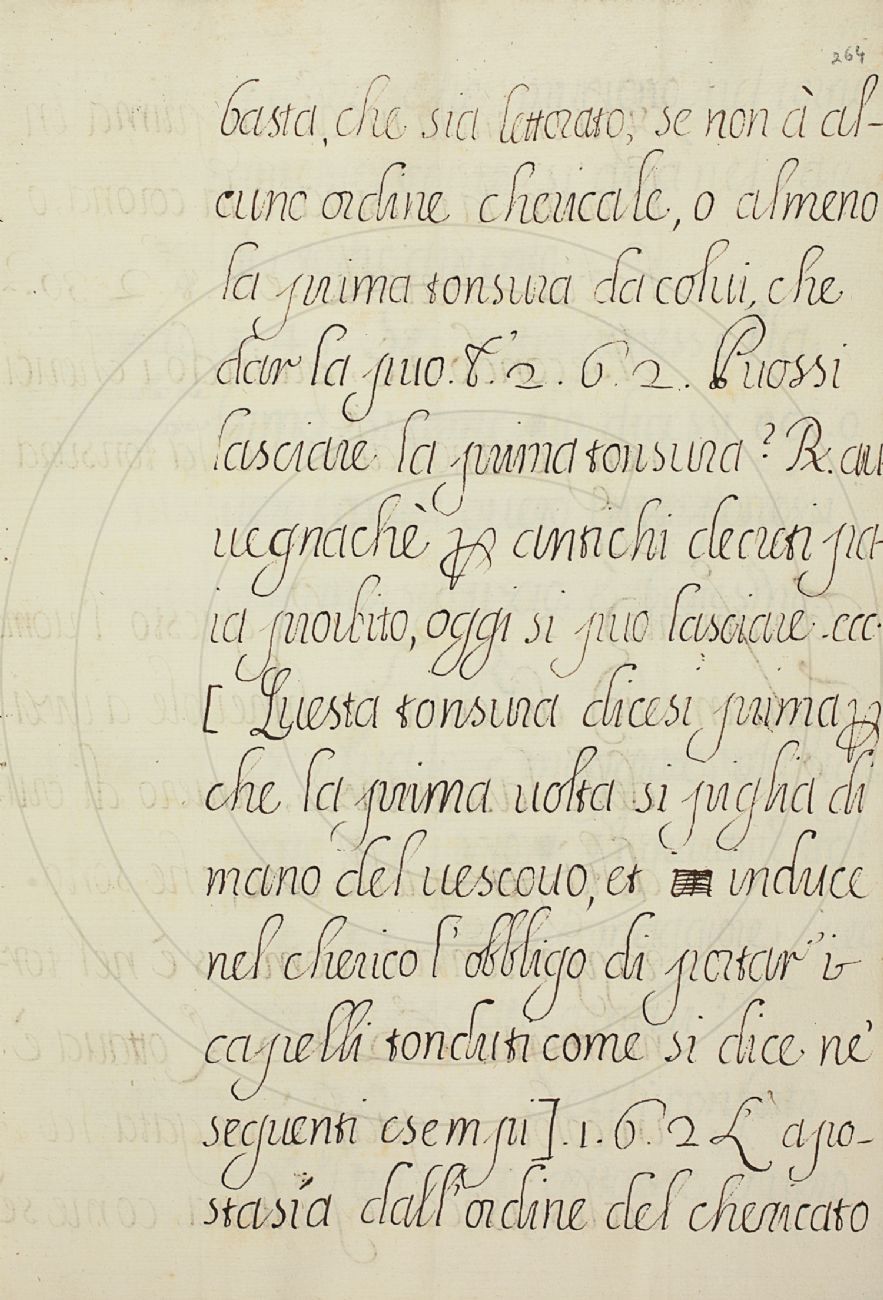 264
basta, che sia letterato; se non à al-
cuno ordine chericale, o almeno
la prima tonsura da colui, che
dar la puo. &. 2. 6. 2. Puossi
lasciare la prima tonsura? R. au
uegnachè ꝑ antichi decreti pa-
ia proibito, oggi si puo lasciare. ecc.
[ Questa tonsura dicesi prima ꝑ
che la prima uolta si piglia di
mano del uescouo, et induce
nel cherico l'obbligo di portar' i
capelli tonduti come si dice ne'
seguenti esempi]. 1. 6. 2 L'apo-
stasia dall'ordine del chericato